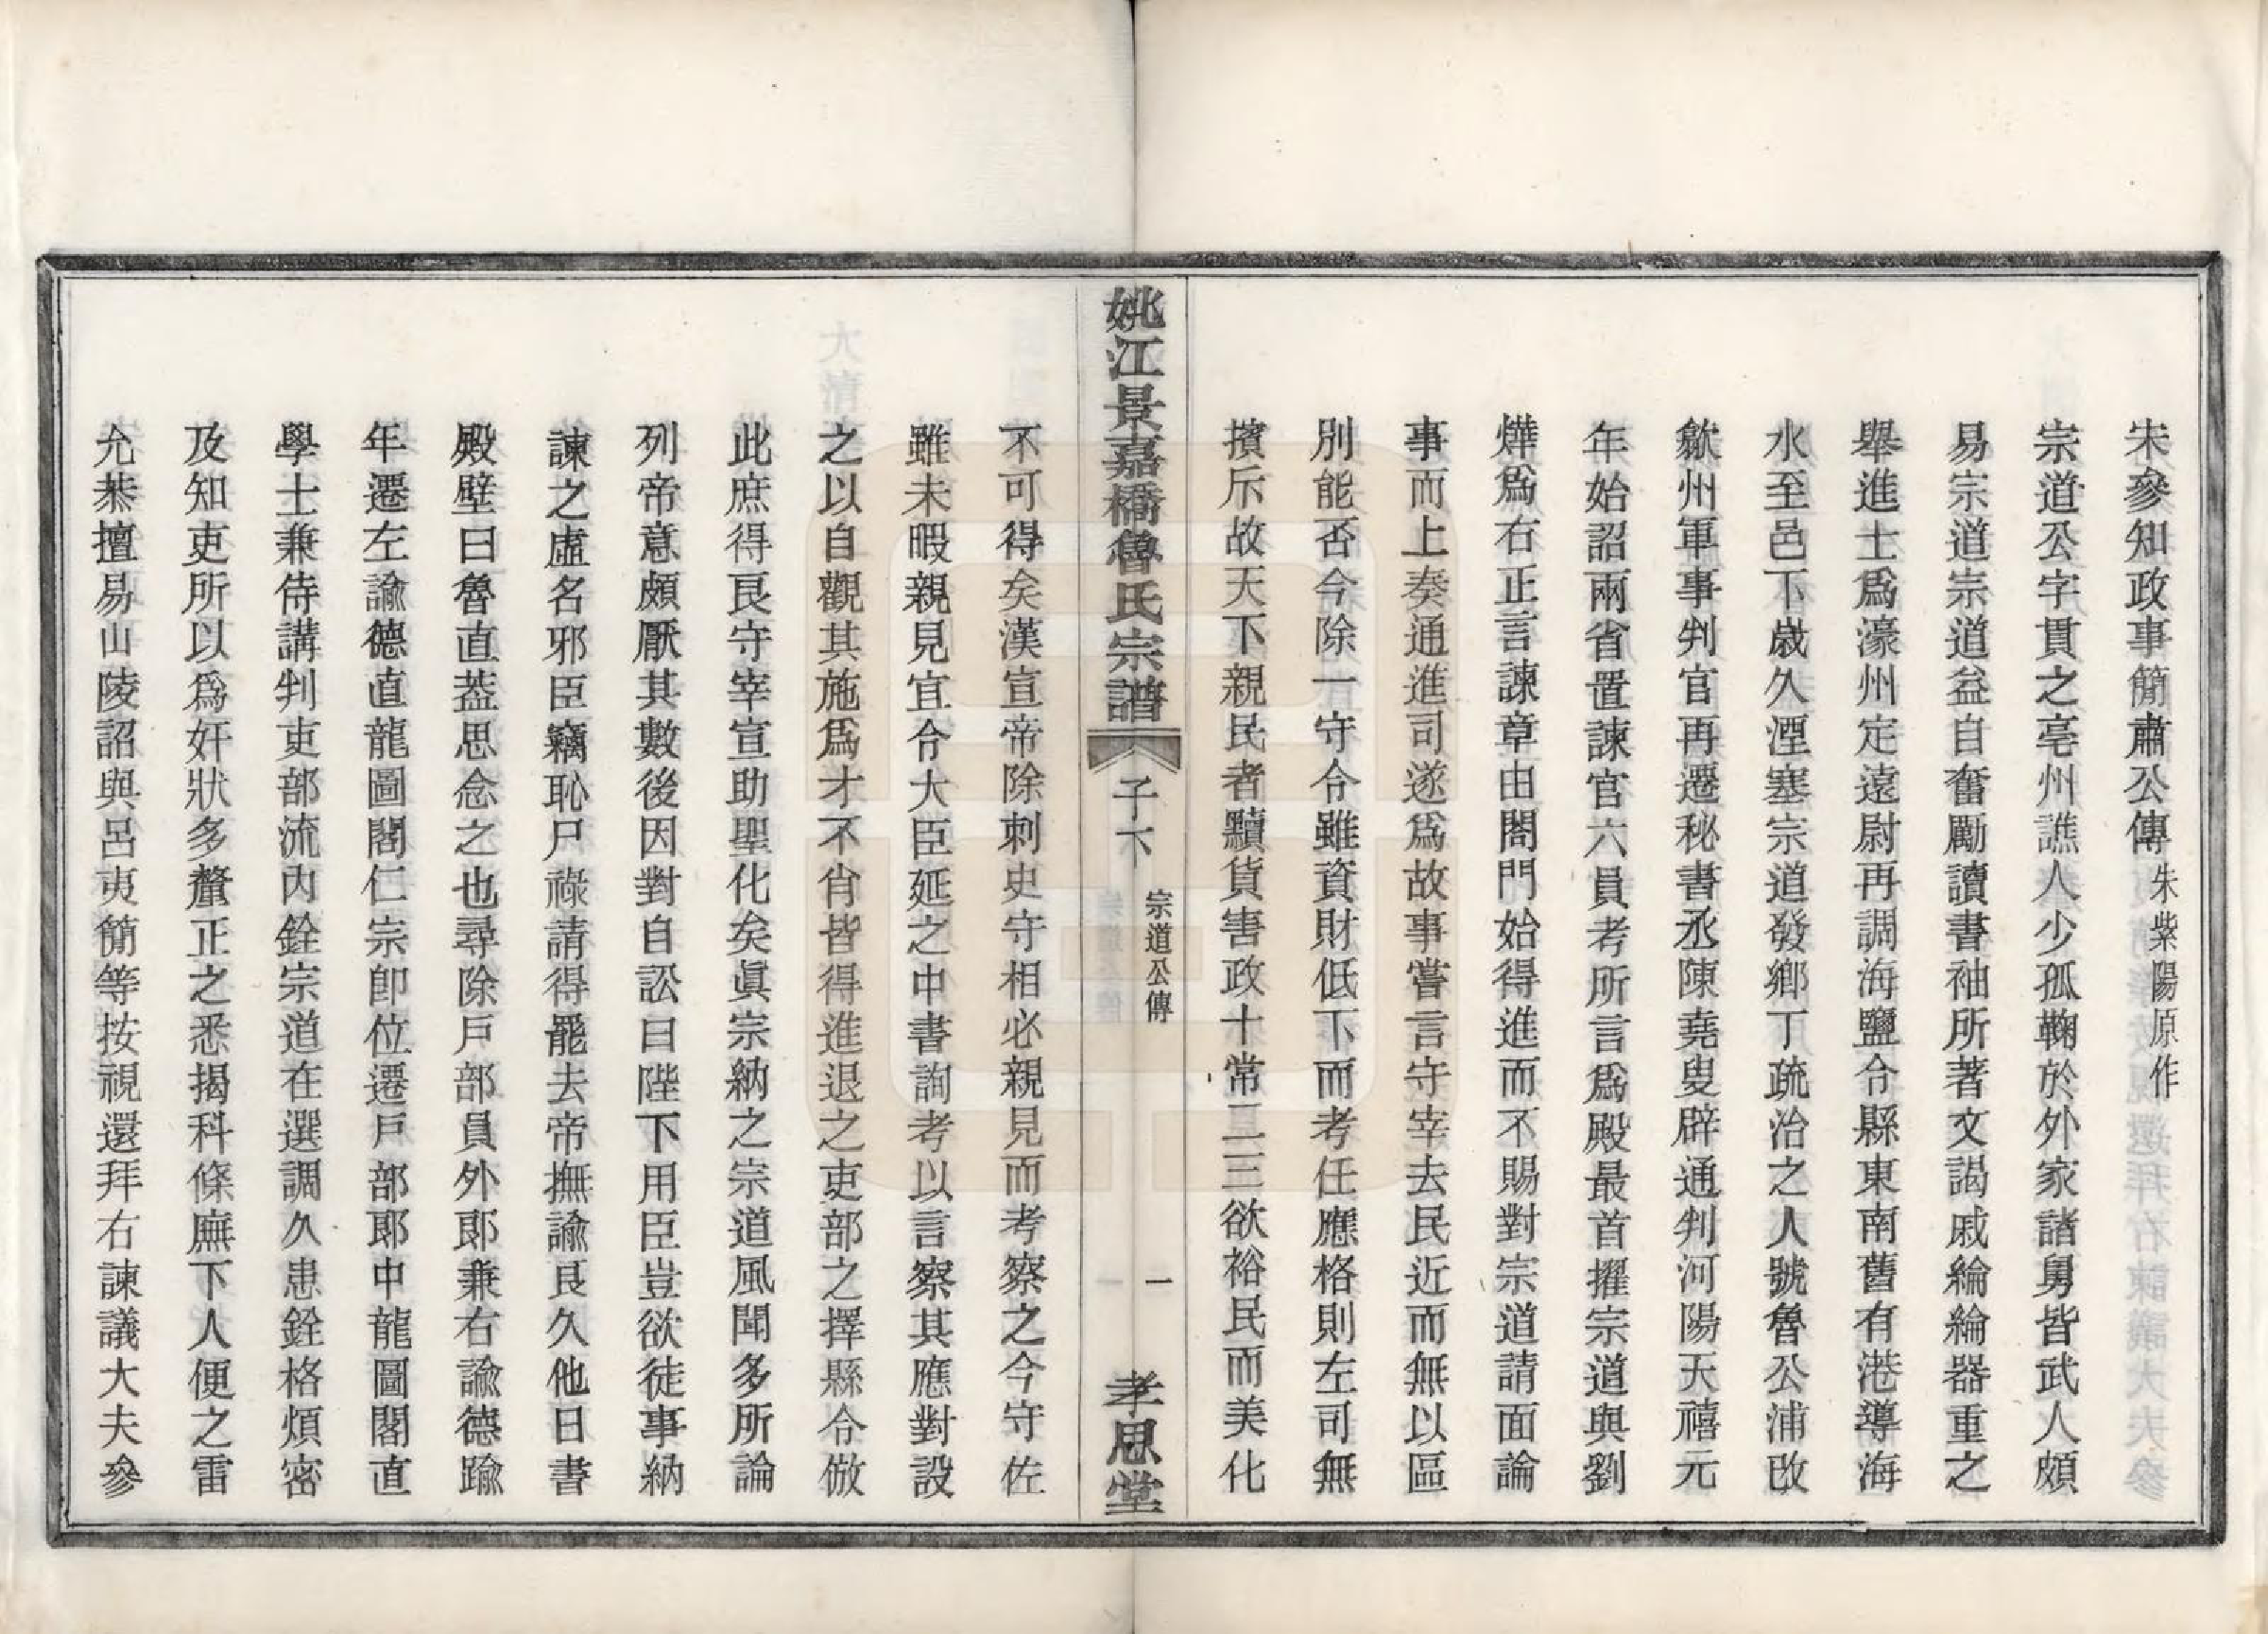 宋參知政事簡肅公傳 朱紫陽原作
宗道公字貫之亳州譙人少孤鞠於外家諸舅皆武人頗
易宗道宗道益自奮勵讀書袖所著文謁戚綸綸器重之
舉進士爲濠州定遠尉再調海鹽令縣東南舊有港導海
水至邑下歲久湮塞宗道發鄉丁疏治之人號魯公浦改
歙州軍事判官再遷秘書丞陳堯叟辟通判河陽天禧元
年始詔兩省置諫官六員考所言爲殿最首擢宗道與劉
燁爲右正言諫章由閤門始得進而不賜對宗道請面論
事而上奏通進司遂爲故事嘗言守宰去民近而無以區
別能否今除一守令雖資財低下而考任應格則左司無
擯斥故天下親民者黷貨害政十常二三欲裕民而美化
姚江景嘉橋魯氏宗譜 子下 宗道公傳 一 孝思堂
不可得矣漢宣帝除刺史守相必親見而考察之今守佐
雖未暇親見宜令大臣延之中書詢考以言察其應對設
之以自觀其施爲才不肖皆得進退之吏部之擇縣令倣
此庶得良守宰宣助聖化矣眞宗納之宗道風聞多所論
列帝意頗厭其數後因對自訟曰陛下用臣豈欲徒事納
諫之虛名邪臣竊恥尸祿請得罷去帝撫諭良久他日書
殿壁曰魯直葢思念之也尋除戶部員外郎兼右諭德踰
年遷左諭德直龍圖閣仁宗卽位遷戶部郎中龍圖閣直
學士兼侍講判吏部流內銓宗道在選調久患銓格煩密
及知吏所以爲奸狀多釐正之悉揭科條廡下人便之雷
允恭擅易山陵詔與呂夷簡等按視還拜右諫議大夫參